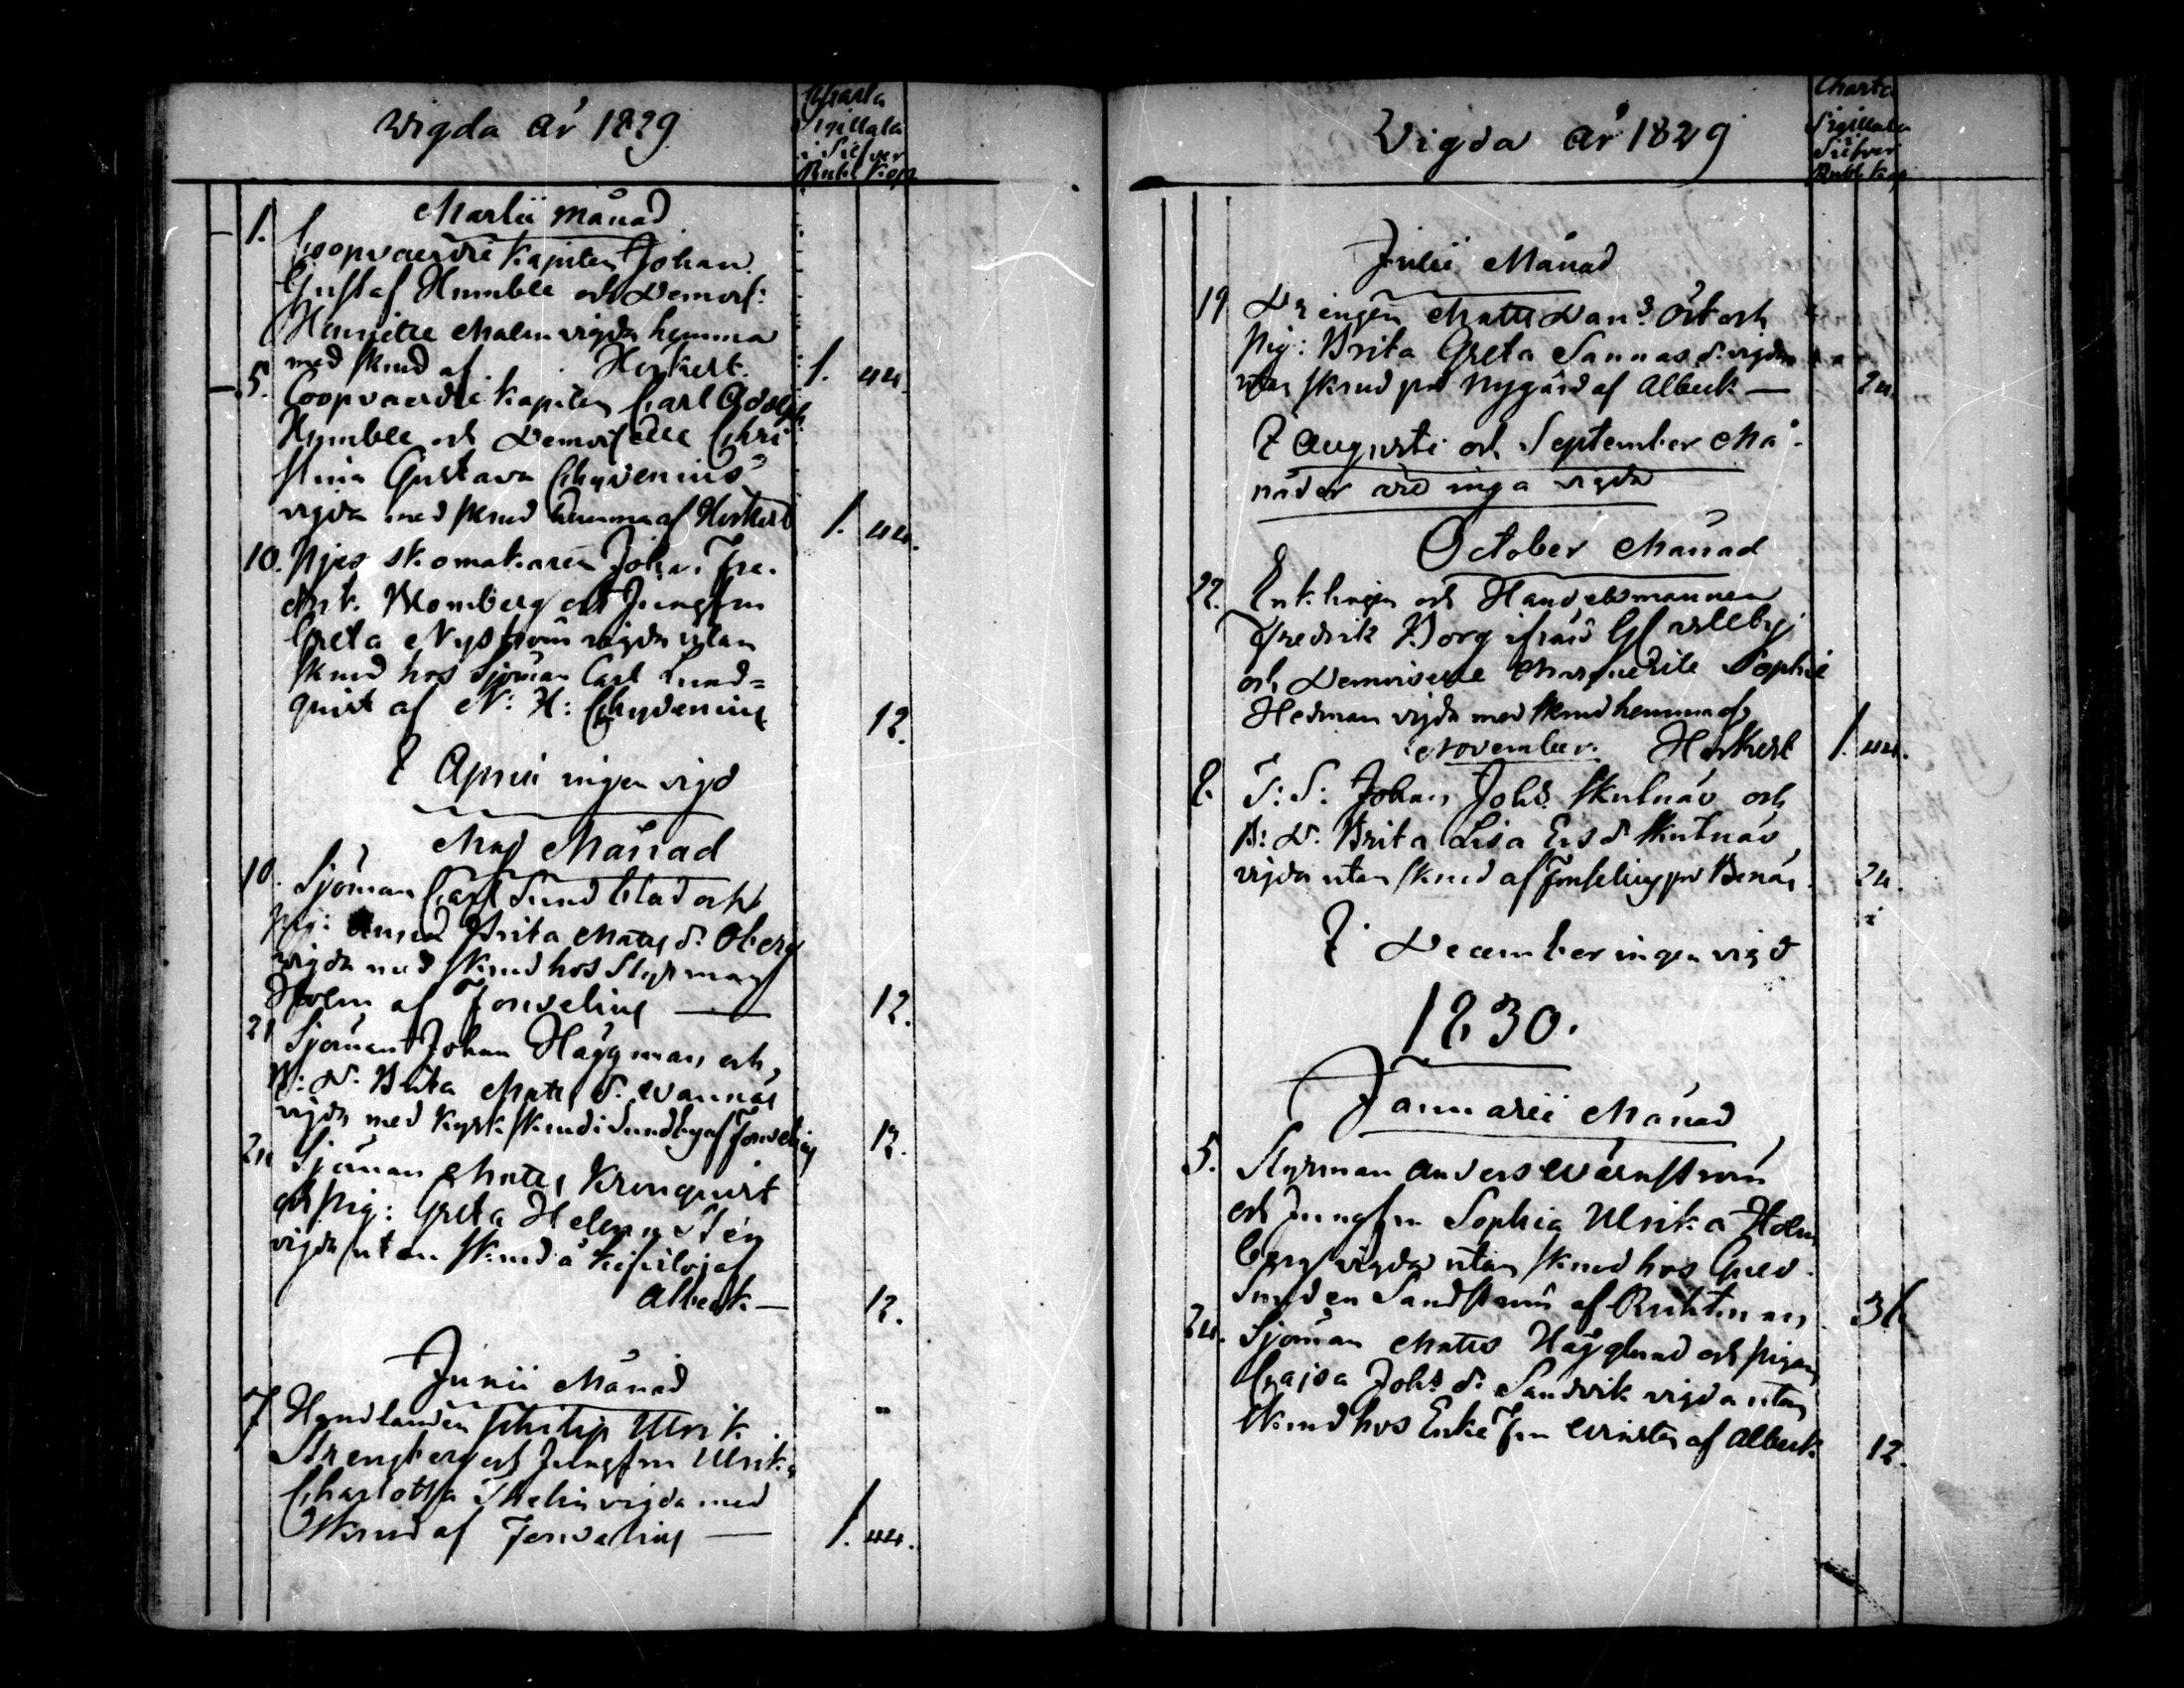 Vigda År 1829
Charta
Sigillata
i Silfver
Rubl Kop
Martii Månad
1. Coopvaerdie Kapiten Johan
Gustaf Humble och Demois:
Henriette Malm vigda hemma
med skrud af Horkert. 1. 44.
5. Coopvaerdie Kapiten Carl Adolph
Humble och Demoiselle Chri
stina Gustava Chydenius
vigda med skrud hemma af Horkert 1. 44.
10. skomakaren Johan Fre.
drik Blomberg och Jungfru
Greta Nyström vigda utan
skrud hos Sjöman Carl Lund=
quist af N: H: Chydenius 12.
I April ingen vigd
Maj Månad
10. Sjöman Carl Sundblad och
pig: Anna Brita Mats d. Öberg
vigda med skrud hos Styrman
Holm af Jonselius 12.
21 Sjöman Johan Häggman och
B: D. Brita Matts d.
vigda med Kyrk skrud i Sundby af Jonselius 12.
24 Sjöman Matts Kronquist
och pig: Greta Helena Stén
vigda utan skrud å af
Albeck 12.
Junii Månad
7 Handlanden Philip Ulrik
Strengberg och Jungfru Ulrika
Charlotta Thelin vigda med
skrud af Jonselius 1. 44.
Vigda År 1829
Charta
Sigillata
i
Silfver
Rubl Kop
Julii Månad
19 Drengen Matts Dans och
pig: Brita Greta Sannas d. vigda
utan skrud på Nygård af Albeck 24.
I Augusti och September Må-
nader äro inga vigda
October Månad
22. Enklingen och Handelsmannen
Fredrik Borg ifrån G Carleby
och Demoiselle Marguerite Sophie
Hedman vigda med skrud hemma af
November. Horkert 1. 44.
8. J: S: Johan Johs. Skutnäs och
B: D. Brita Lisa Ers d. Skutnäs
vigda utan skrud af Jonselius på Benäs. 24.
I December ingen vigd
1830.
Januarii Månad
5. Styrman Anders Wärnström
och Jungfru Sophia Ulrika Holm
berg vigda utan skrud hos Guld
smeden Sandström af 36
24. Sjöman Matts Hägglund och pigan
Cajsa Johs d. Sandvik vigda utan
skrud hos Enke Fru af Albeck 12.